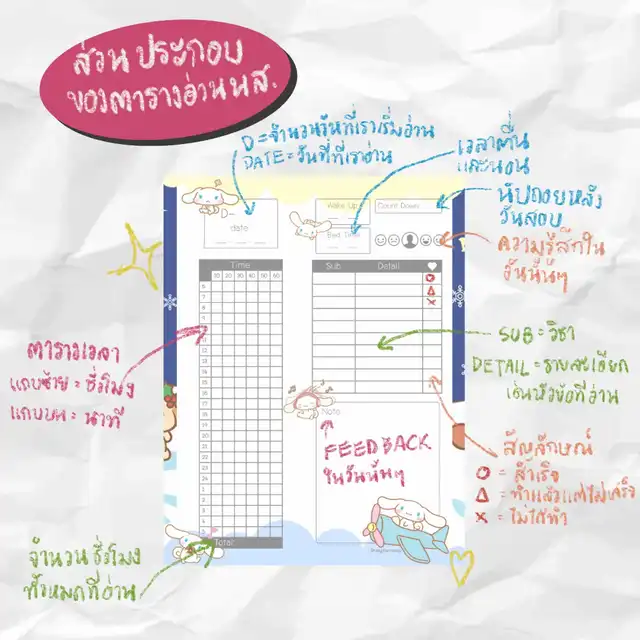 ส่วนประกอบ
ของตารางอ่านนส.
D = จำนวนวันที่เราเริ่มอ่าน
DATE = วันที่ที่เราอ่าน
เวลาตื่น
และนอน
นับถอยหลัง
วันสอบ
ความรู้สึกใน
วันนั้นๆ
D-
date
Wake Up
Count Down
Bed Time
Time
10 20 30 40 50 60
Sub Detail
ตารางเวลา
แถบซ้าย = ชั่วโมง
แถบบน = นาที
SUB = วิชา
DETAIL = รายละเอียด
เช่นหัวข้อที่อ่าน
Note
FEEDBACK
ในวันนั้นๆ
สัญลักษณ์
O = สำเร็จ
△ = ทำแล้วแต่ไม่เสร็จ
X = ไม่ได้ทำ
Total:
จำนวนชั่วโมง
ทั้งหมดที่อ่าน